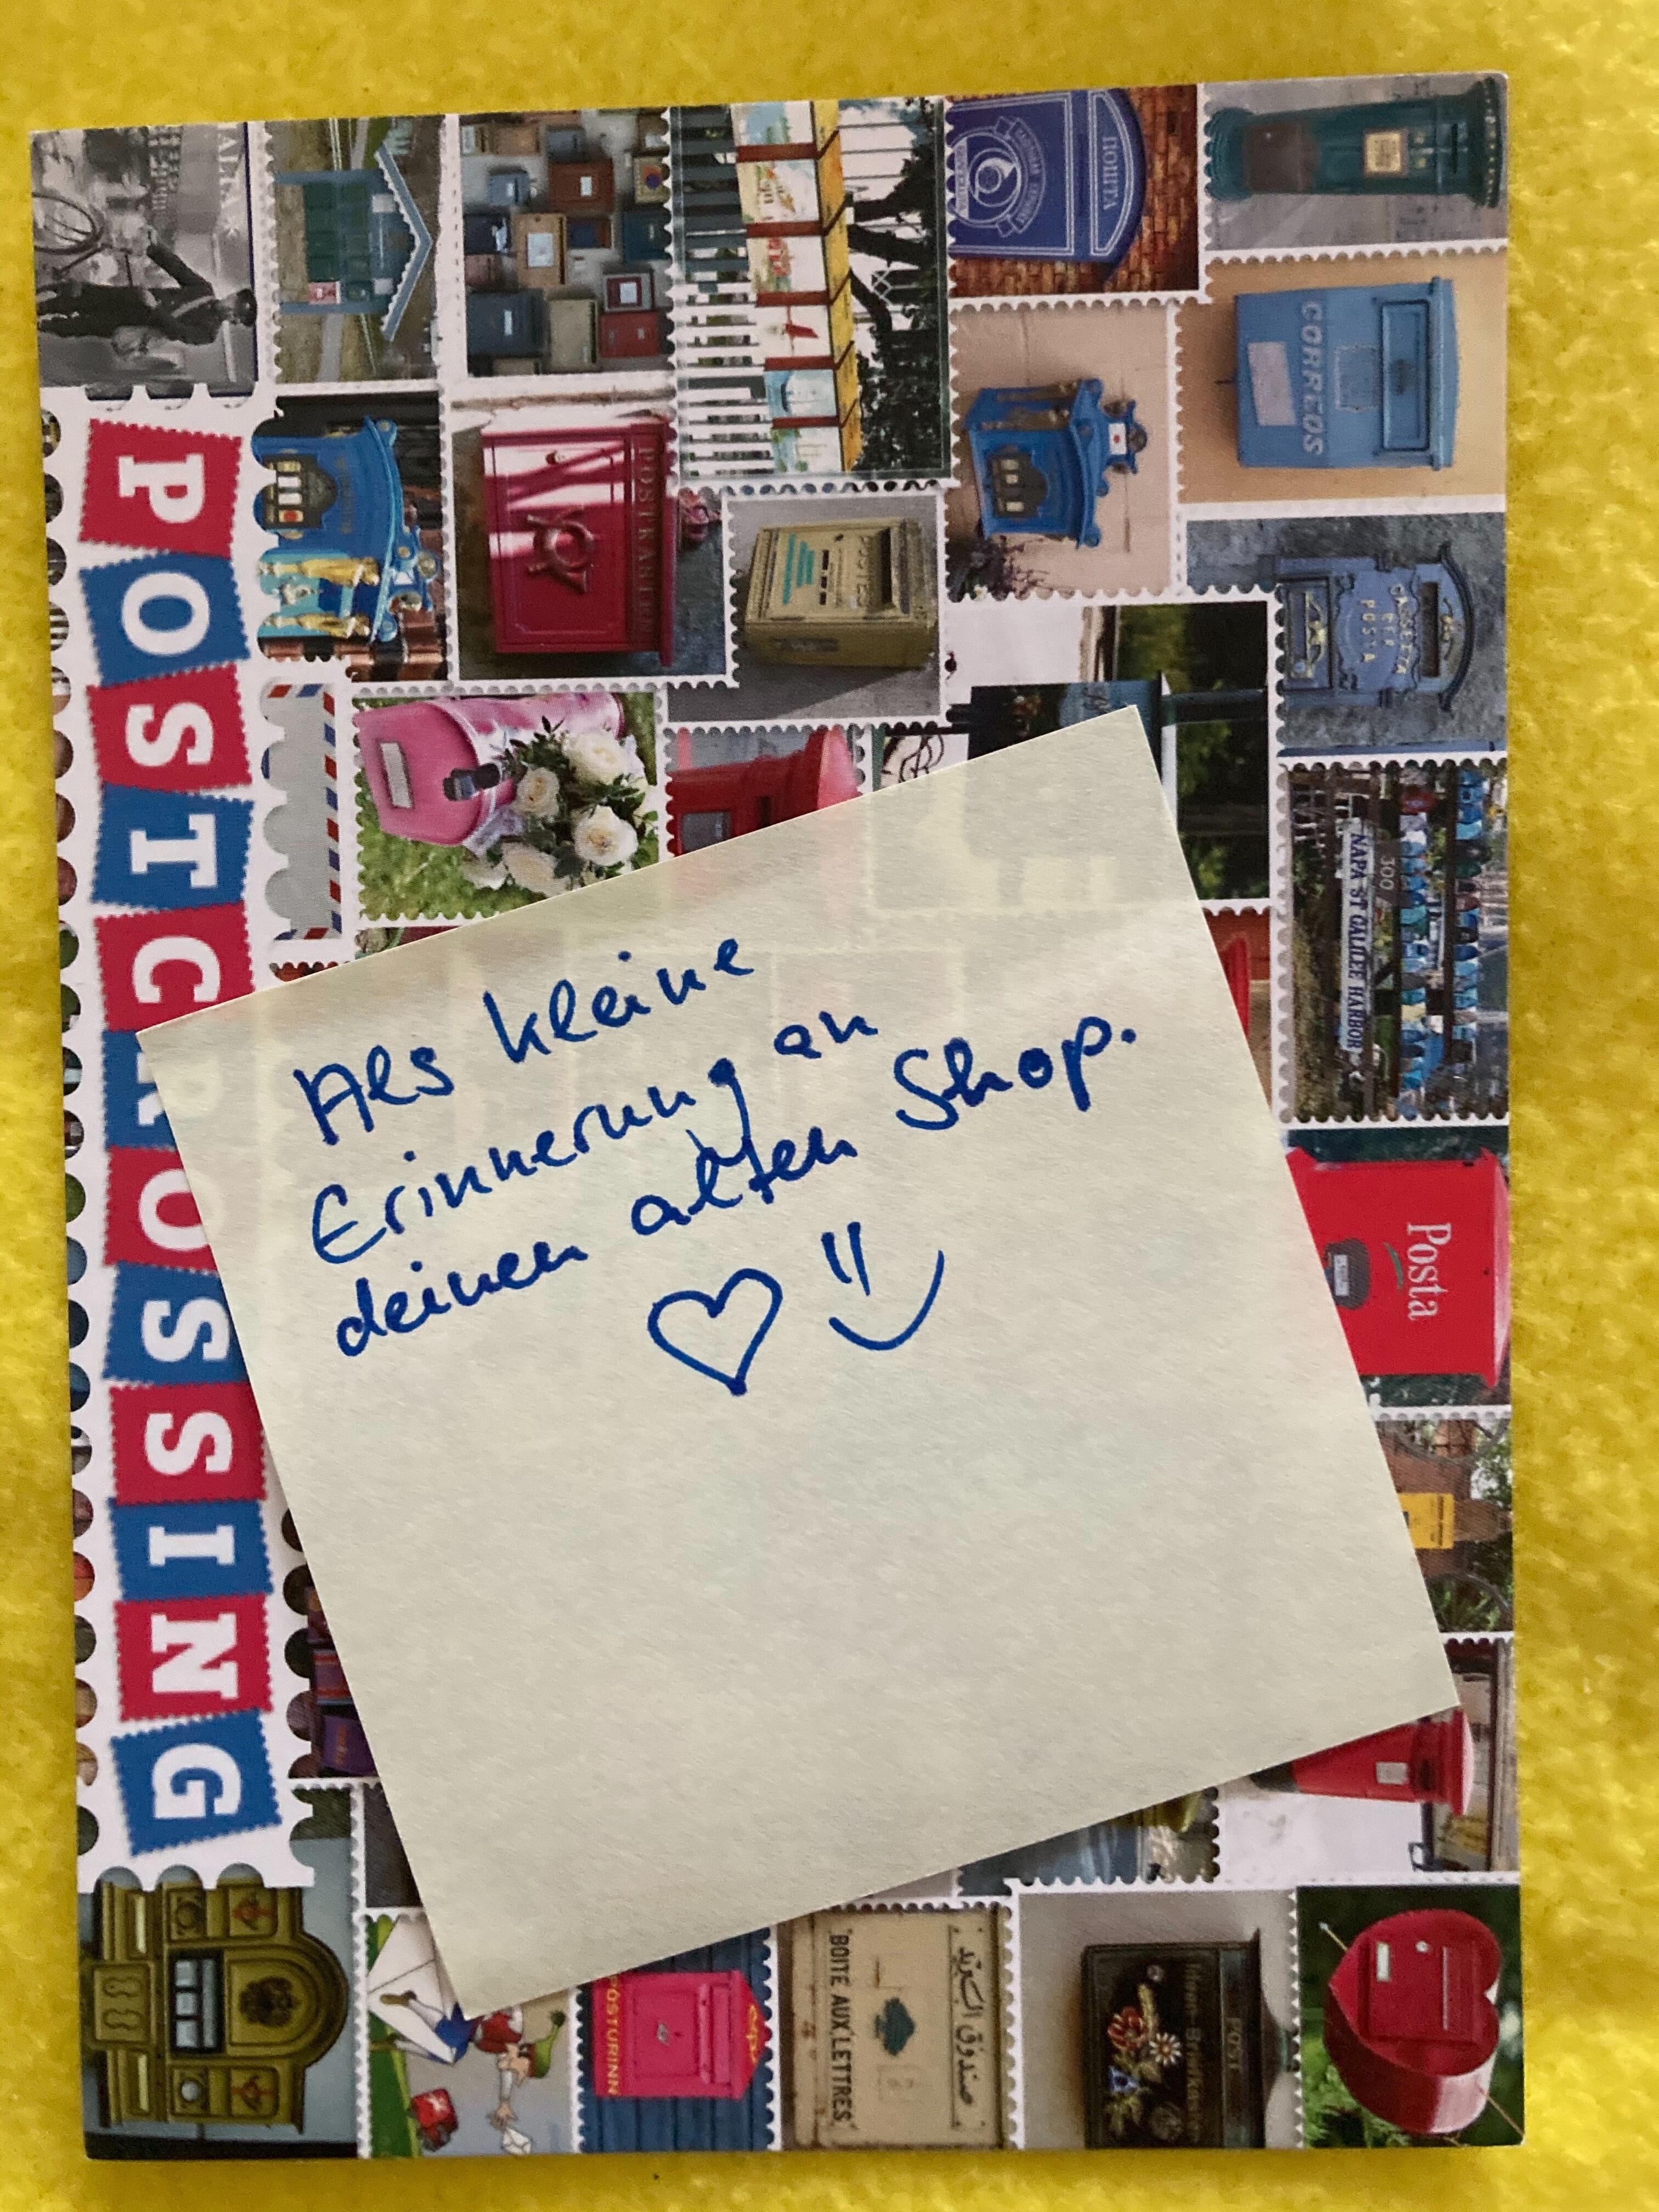 POSTCROSSING
Als kleine
Erinnerung an
deinen alten Shop.
ПОЩТА
CORREOS
POSTKANTOOR
POSTES
CASSETTA
PER
POSTA
300
NAPA ST GALILEE HARBOR
Posta
PÓSTURINN
BOITE AUX LETTRES
صندوق البريد
Ideen-Briefkasten
POST